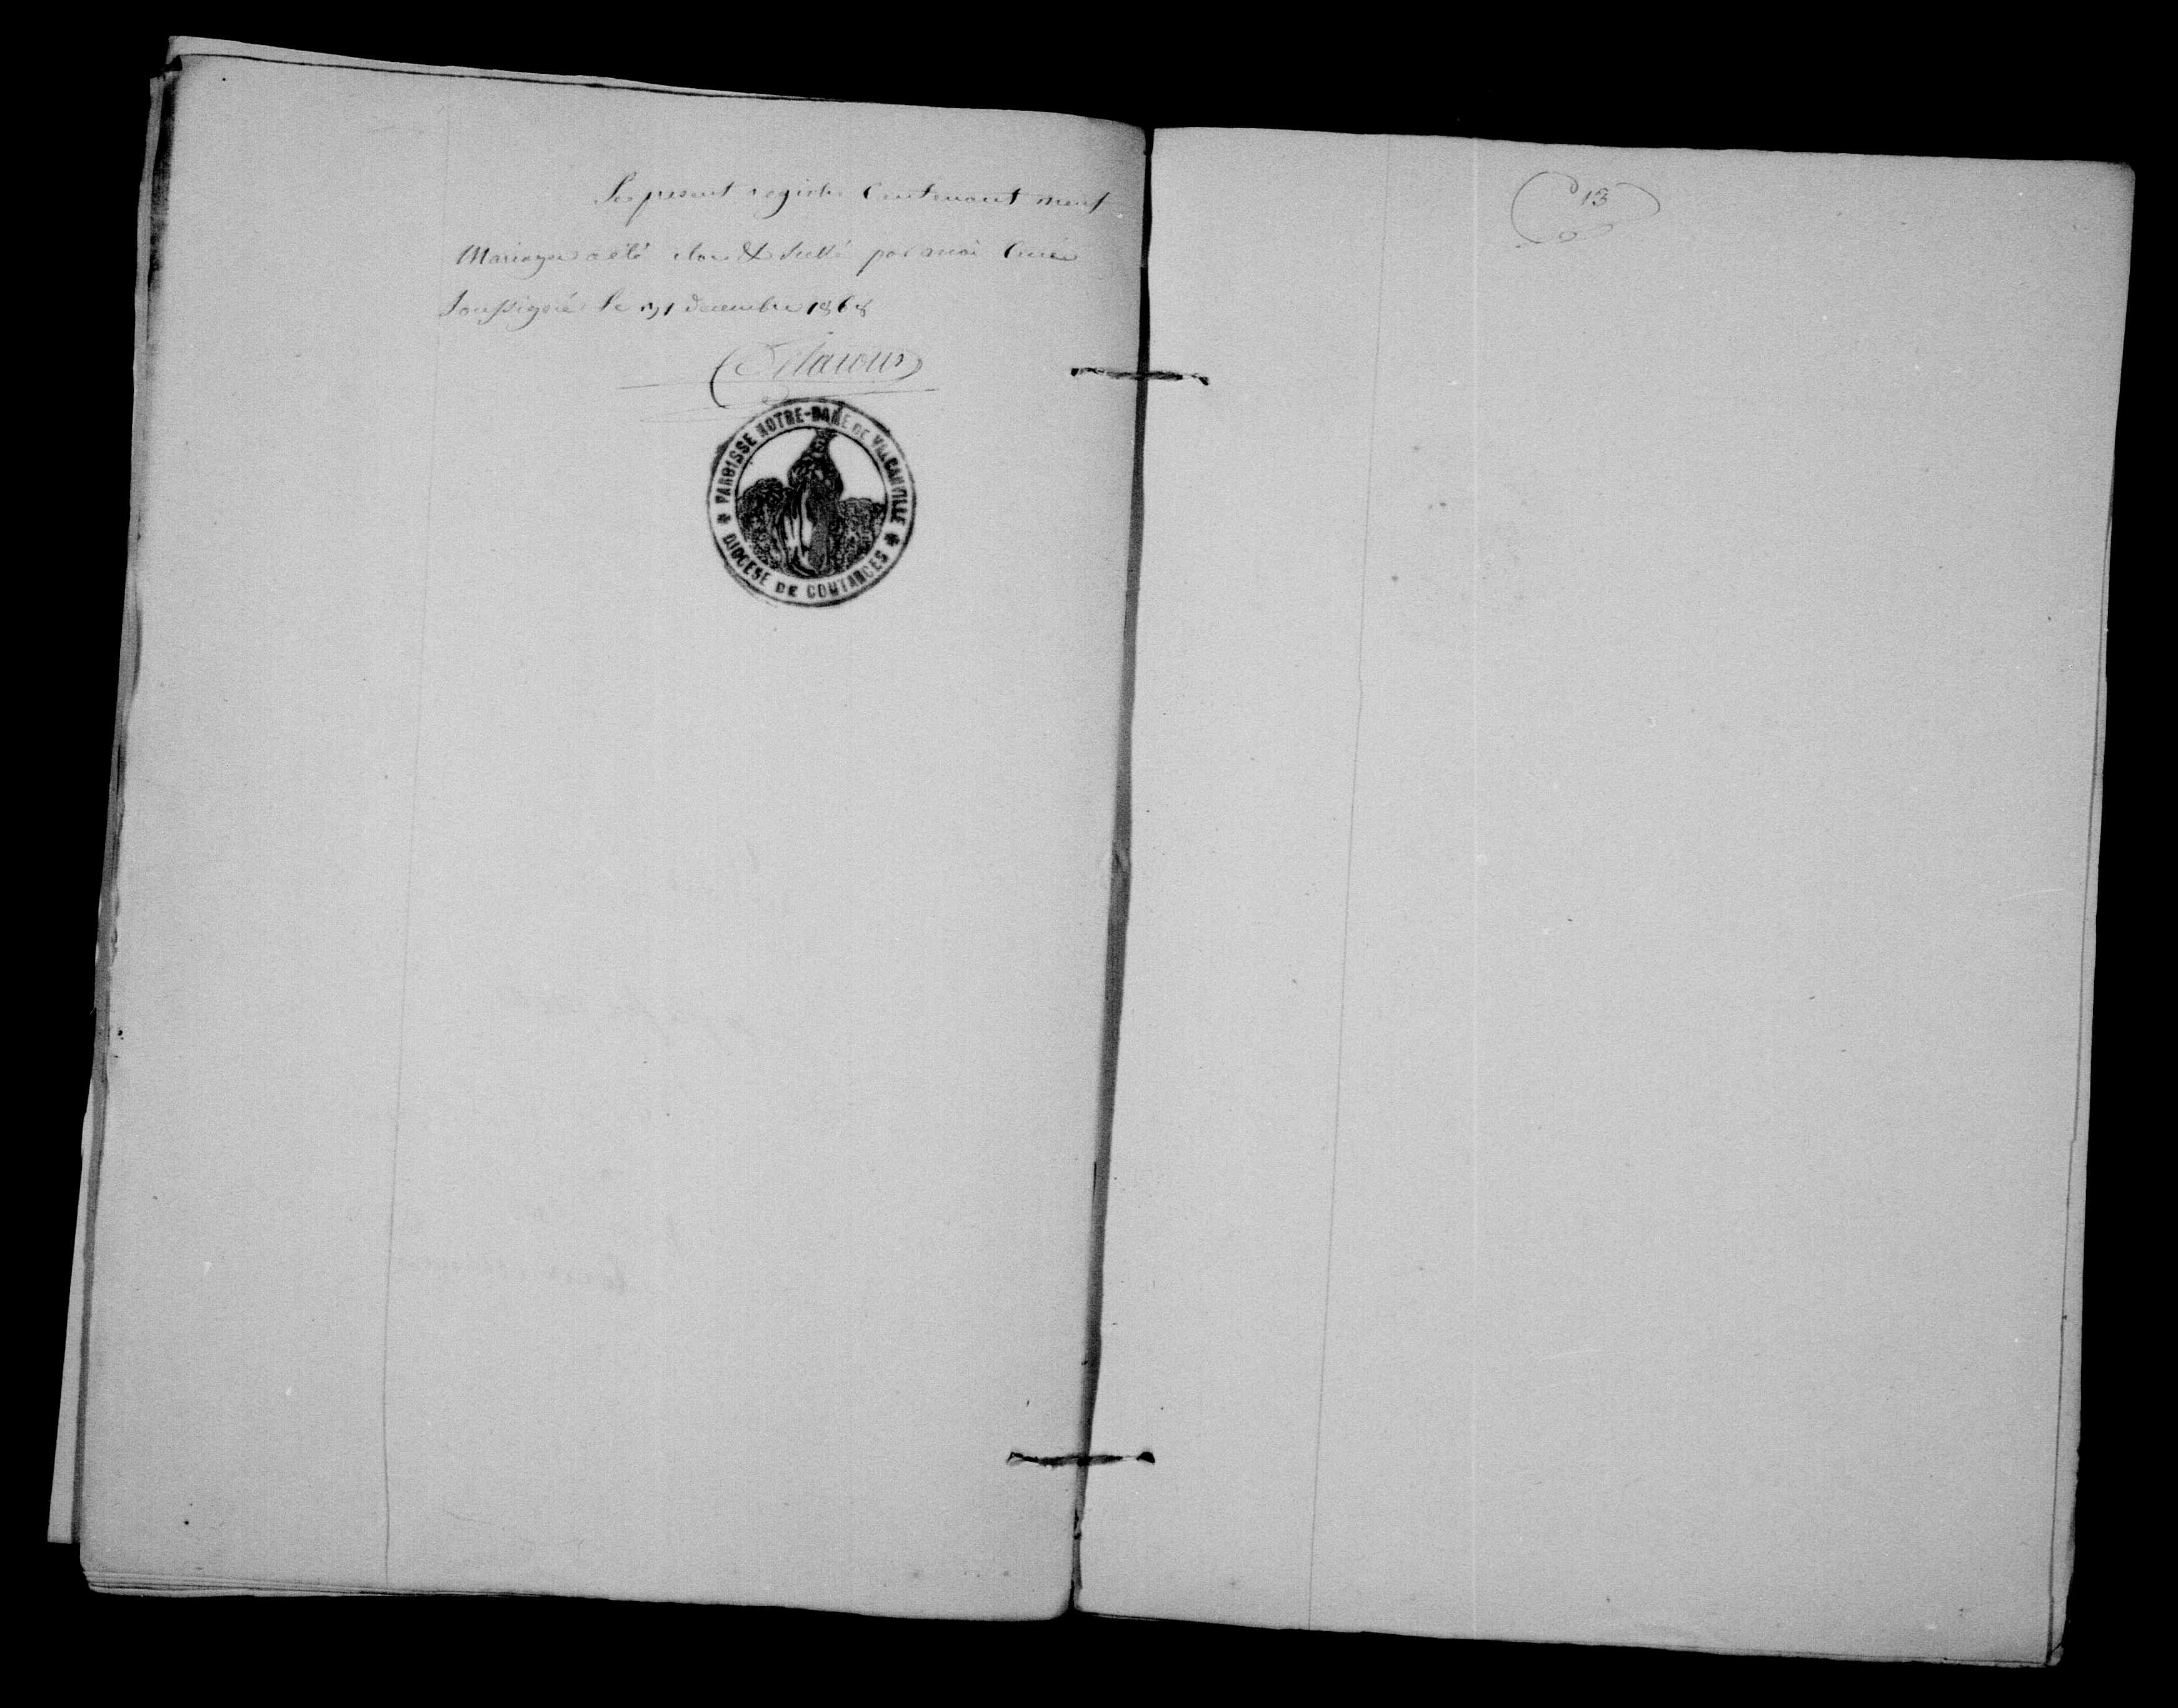 Le present registre Contenant neuf
Mariages a été clos & scellé par moi Curé
Soussigné le 31 decembre 1868
PAROISSE NOTRE-DAME DE VALCANVILLE
DIOCESE DE COUTANCES
13